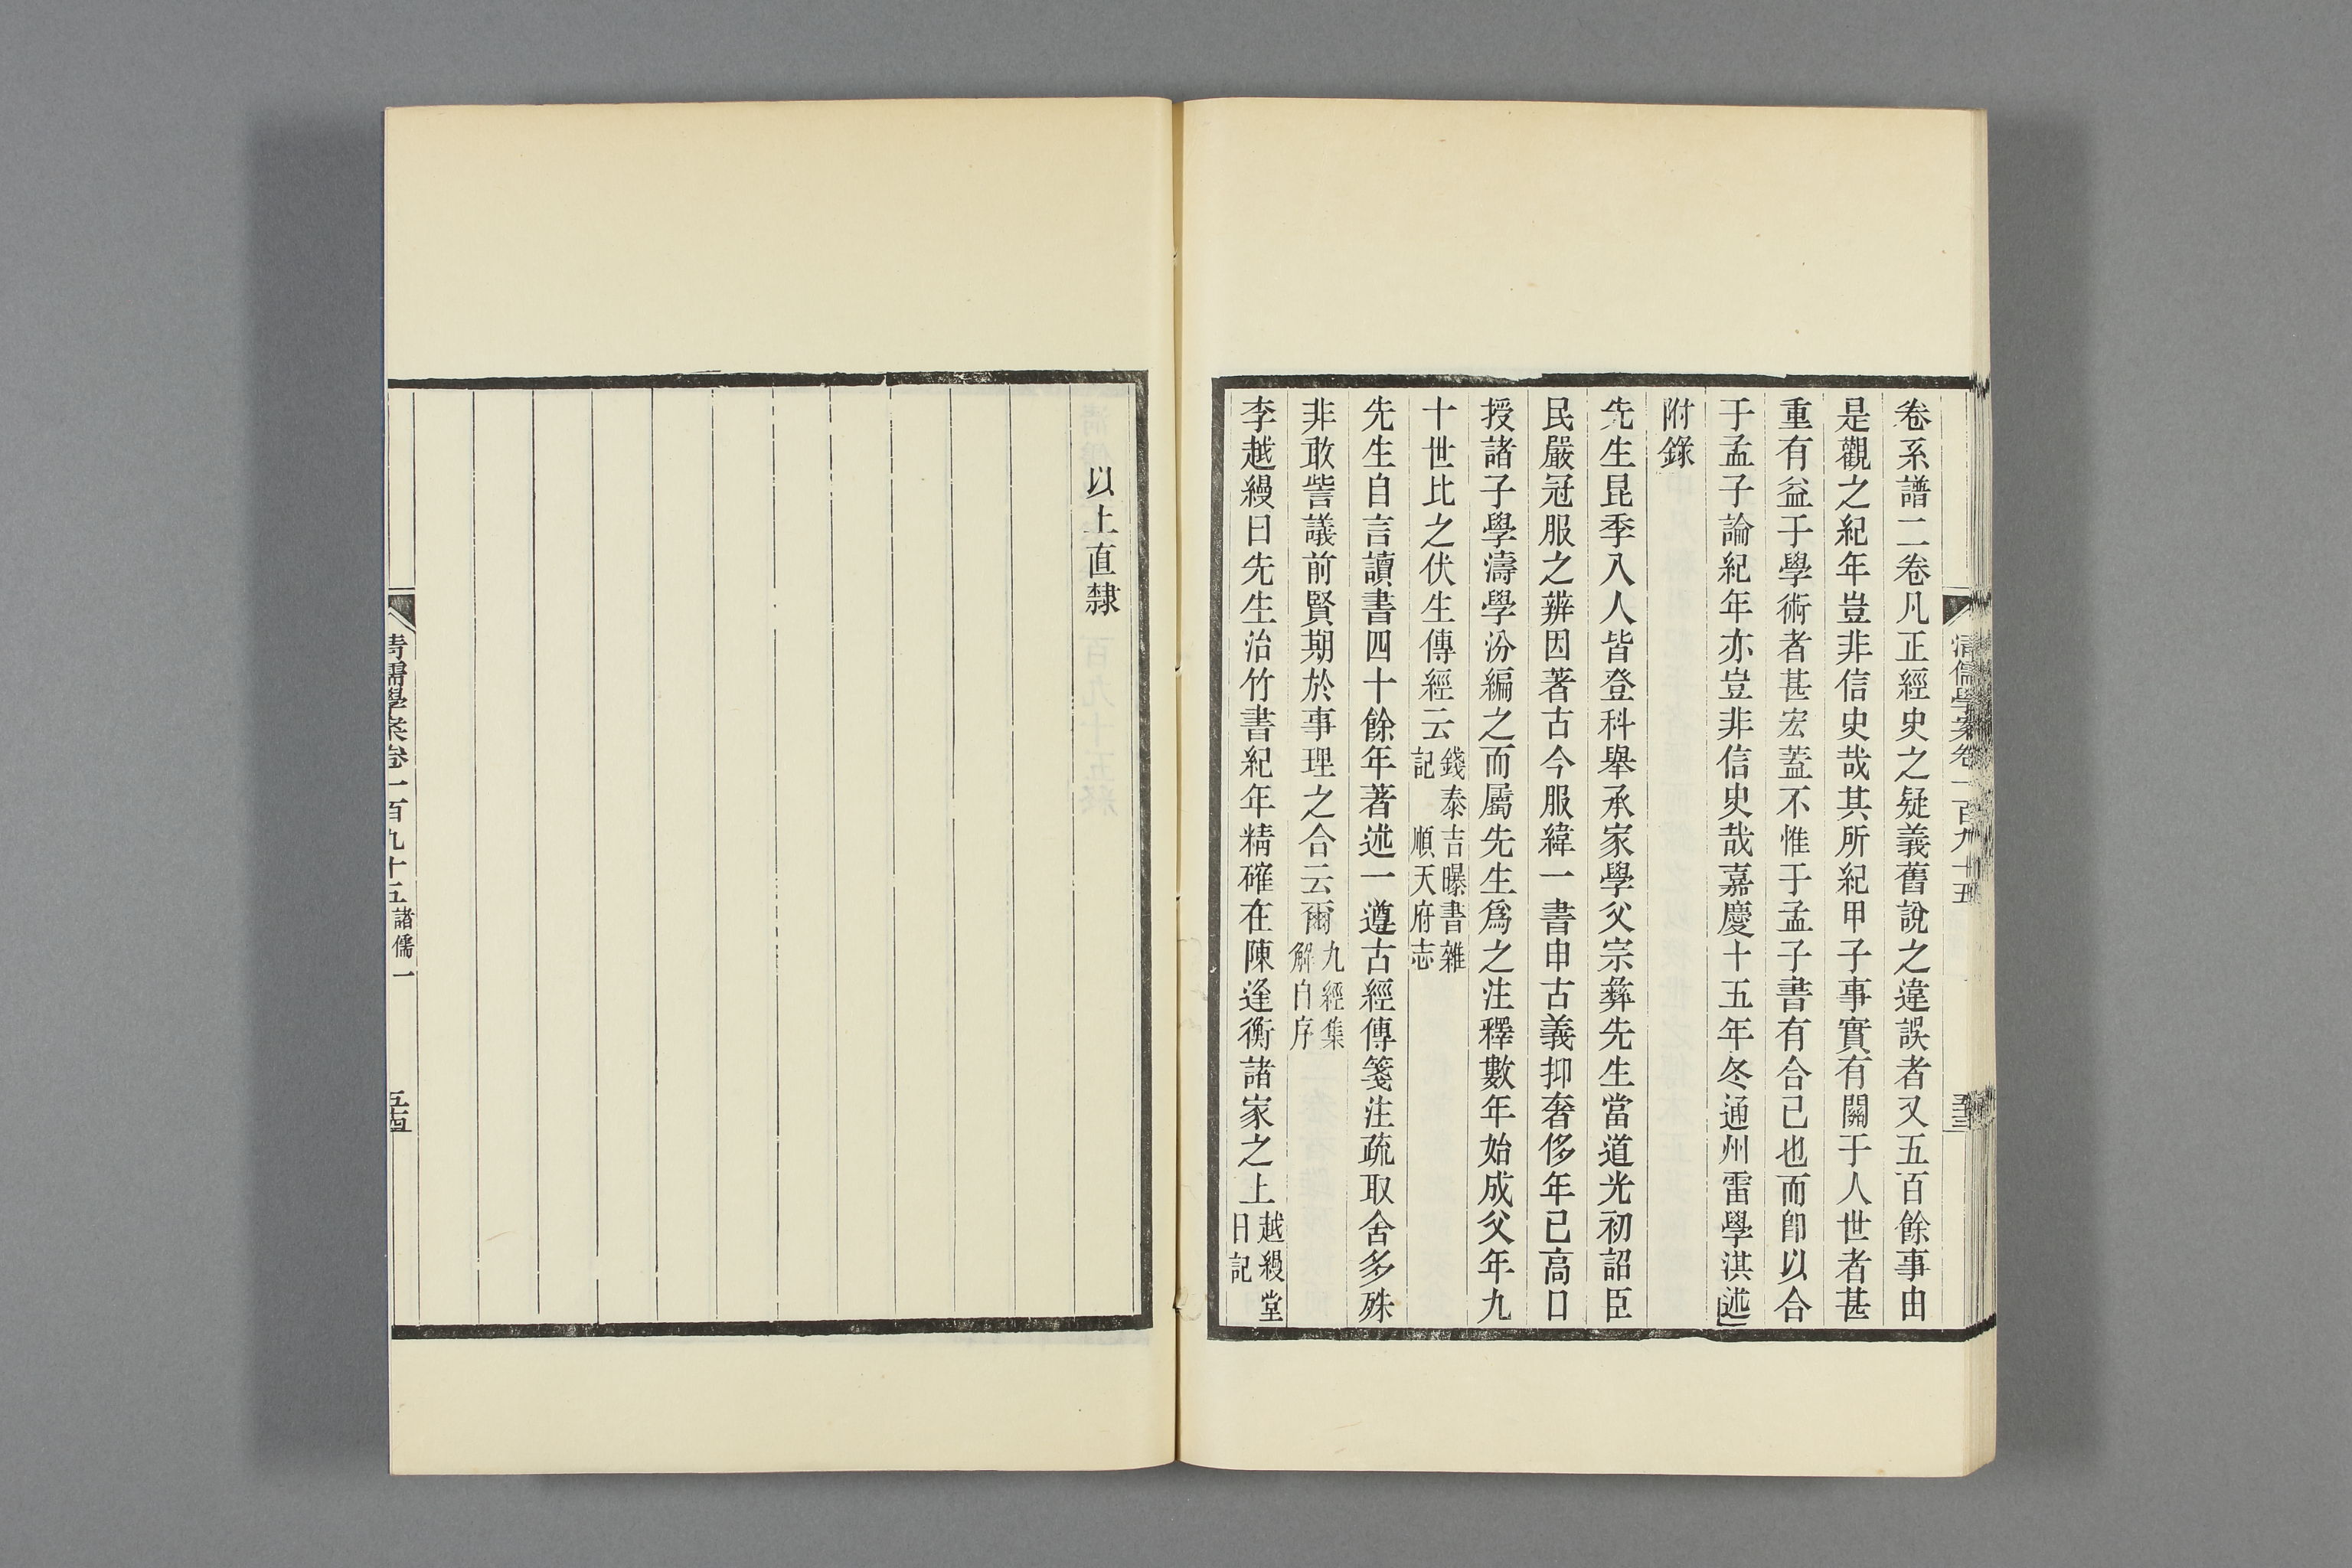 清儒學案卷一百九十五
五十三
卷系譜二卷凡正經史之疑義舊說之違誤者又五百餘事由
是觀之紀年豈非信史哉其所紀甲子事實有關于人世者甚
重有益于學術者甚宏蓋不惟于孟子書有合已也而卽以合
于孟子論紀年亦豈非信史哉嘉慶十五年冬通州雷學淇述
附錄
先生昆季八人皆登科舉承家學父宗彝先生當道光初詔臣
民嚴冠服之辨因著古今服緯一書申古義抑奢侈年已高口
授諸子學濤學汾編之而屬先生爲之注釋數年始成父年九
十世比之伏生傳經云錢泰吉曝書雜記　順天府志
先生自言讀書四十餘年著述一遵古經傳箋注疏取舍多殊
非敢訾議前賢期於事理之合云爾九經集解自序
李越縵曰先生治竹書紀年精確在陳逢衡諸家之上越縵堂日記
以上直隸
清儒學案卷一百九十五　諸儒一
五十四